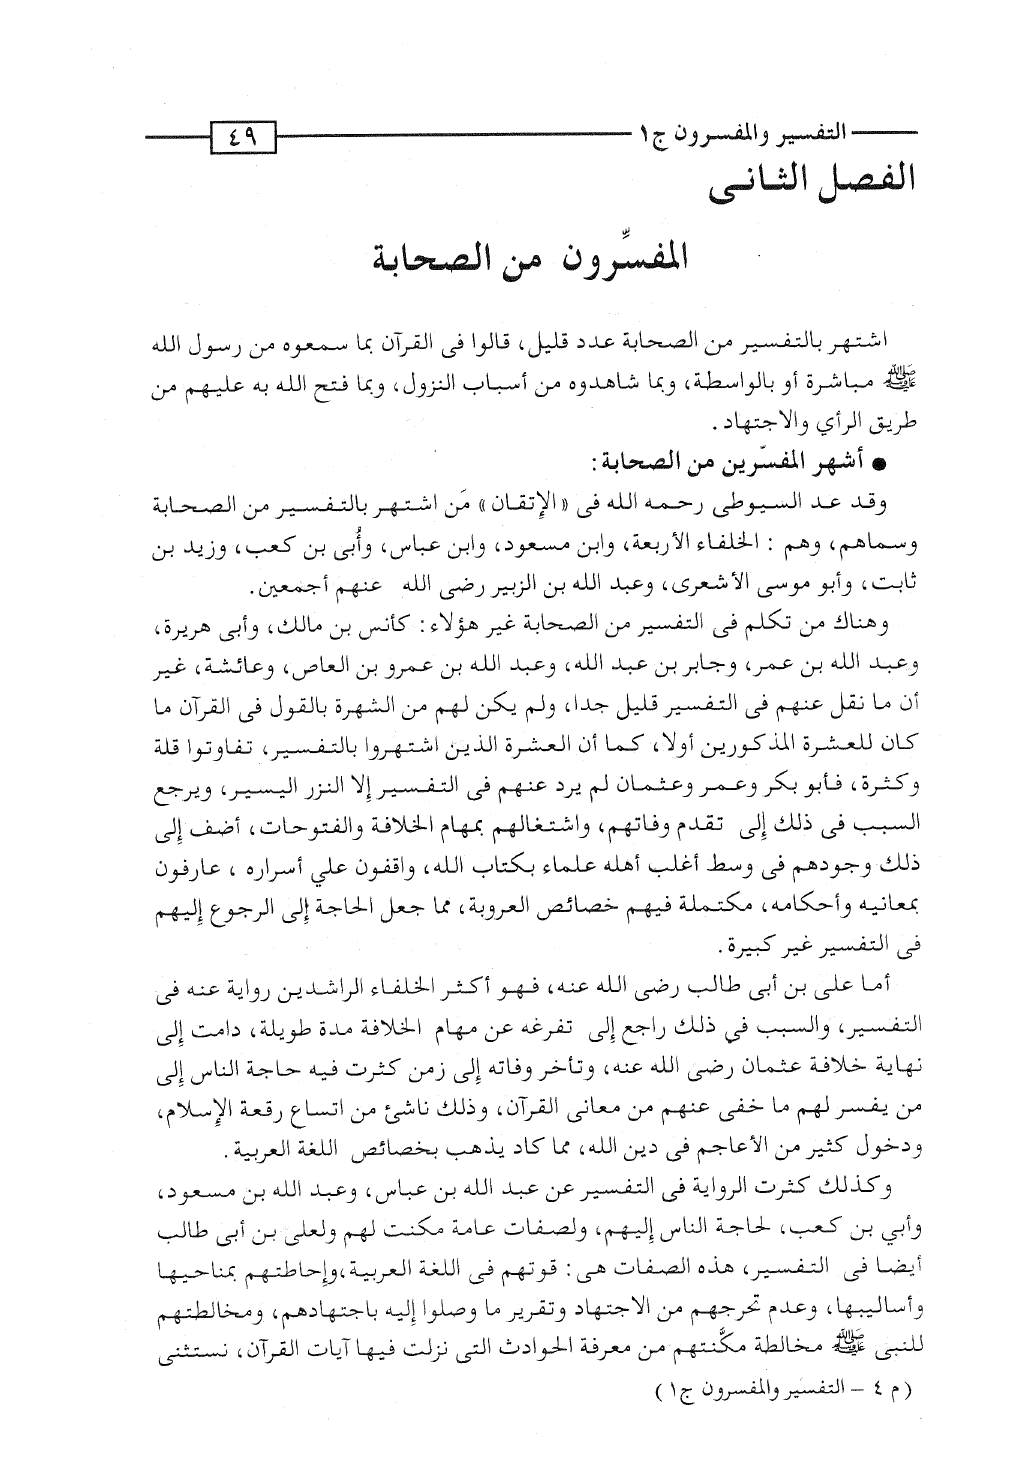 التفسير والمفسرون ج١ ٤٩
الفصل الثانى
المفسِّرون من الصحابة
اشتهر بالتفسير من الصحابة عدد قليل، قالوا فى القرآن بما سمعوه من رسول الله
ﷺ مباشرة أو بالواسطة، وبما شاهدوه من أسباب النزول، وبما فتح الله به عليهم من
طريق الرأي والاجتهاد.
● أشهر المفسّرين من الصحابة:
وقد عد السيوطى رحمه الله فى «الإتقان» مَن اشتهر بالتفسير من الصحابة
وسماهم، وهم : الخلفاء الأربعة، وابن مسعود، وابن عباس، وأُبى بن كعب، وزيد بن
ثابت، وأبو موسى الأشعرى، وعبد الله بن الزبير رضى الله عنهم أجمعين.
وهناك من تكلم فى التفسير من الصحابة غير هؤلاء: كأنس بن مالك، وأبى هريرة،
وعبد الله بن عمر، وجابر بن عبد الله، وعبد الله بن عمرو بن العاص، وعائشة، غير
أن ما نقل عنهم فى التفسير قليل جدا، ولم يكن لهم من الشهرة بالقول فى القرآن ما
كان للعشرة المذكورين أولا، كما أن العشرة الذين اشتهروا بالتفسير، تفاوتوا قلة
وكثرة، فأبو بكر وعمر وعثمان لم يرد عنهم فى التفسير إلا النزر اليسير، ويرجع
السبب فى ذلك إلى تقدم وفاتهم، واشتغالهم بمهام الخلافة والفتوحات، أضف إلى
ذلك وجودهم فى وسط أغلب أهله علماء بكتاب الله، واقفون علي أسراره ، عارفون
بمعانيه وأحكامه، مكتملة فيهم خصائص العروبة، مما جعل الحاجة إلى الرجوع إليهم
فى التفسير غير كبيرة.
أما على بن أبى طالب رضى الله عنه، فهو أكثر الخلفاء الراشدين رواية عنه فى
التفسير، والسبب في ذلك راجع إلى تفرغه عن مهام الخلافة مدة طويلة، دامت إلى
نهاية خلافة عثمان رضى الله عنه، وتأخر وفاته إلى زمن كثرت فيه حاجة الناس إلى
من يفسر لهم ما خفى عنهم من معانى القرآن، وذلك ناشئ من اتساع رقعة الإسلام،
ودخول كثير من الأعاجم فى دين الله، مما كاد يذهب بخصائص اللغة العربية.
وكذلك كثرت الرواية فى التفسير عن عبد الله بن عباس، وعبد الله بن مسعود،
وأبي بن كعب، لحاجة الناس إليهم، ولصفات عامة مكنت لهم ولعلى بن أبى طالب
أيضا فى التفسير، هذه الصفات هى: قوتهم فى اللغة العربية،وإحاطتهم بمناحيها
وأساليبها، وعدم تحرجهم من الاجتهاد وتقرير ما وصلوا إليه باجتهادهم، ومخالطتهم
للنبى ﷺ مخالطة مكَّنتهم من معرفة الحوادث التى نزلت فيها آيات القرآن، نستثنى
(م ٤ – التفسير والمفسرون ج١)